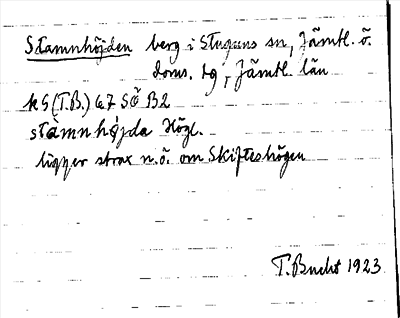 Stamnhöjden berg i Stuguns sn, Jämtl. ö.
doms. tg, Jämtl. län
k S (T.B.) 67 SÖ B2
stàmnhö́jda Högl.
ligger strax n.ö. om Skifteshögen
T. Bucht 1923